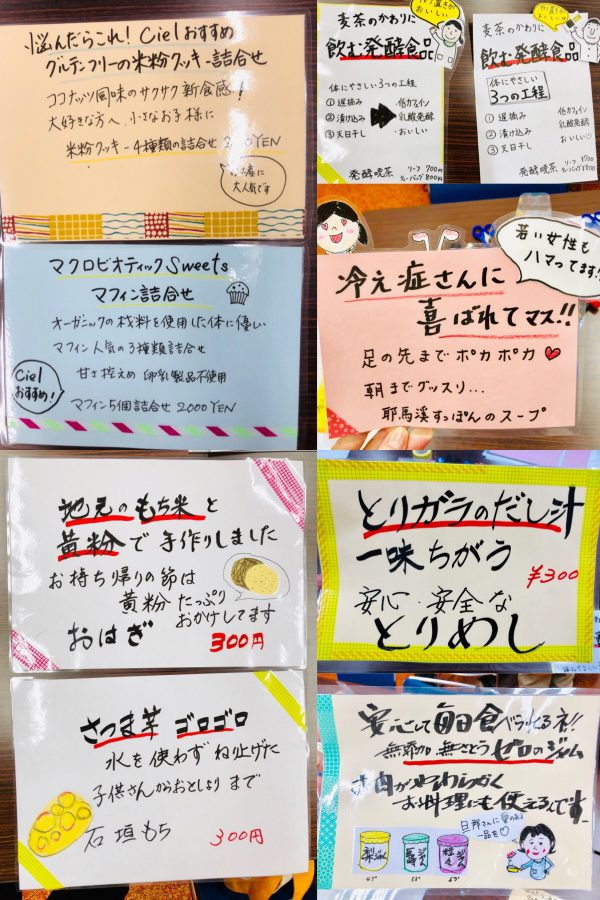 悩んだらこれ！Cielおすすめ
グルテンフリーの米粉クッキー詰合せ
ココナッツ風味のサクサク新食感！
大好きな方へ、小さなお子様に
米粉クッキー4種類の詰合せ 2000YEN
大人気です
マクロビオティックSweets
マフィン詰合せ
オーガニックの材料を使用した体に優しい
マフィン人気の3種類詰合せ
甘さ控えめ 卵乳製品不使用
Ciel
おすすめ！
マフィン5個詰合せ 2000YEN
麦茶のかわりに
飲む発酵食品
体にやさしい
3つの工程
① 遅摘み
② 漬け込み
③ 天日干し
低カフェイン
乳酸発酵
おいしい
発酵晩茶
リーフ 700円
ティーバッグ 800円
麦茶のかわりに
飲む発酵食品
体にやさしい
3つの工程
① 遅摘み
② 漬け込み
③ 天日干し
低カフェイン
乳酸発酵
おいしい♡
発酵晩茶
リーフ ¥700
ティーバッグ ¥800
若い女性も
ハマってます!
冷え症さんに
喜ばれてマス!!
足の先までポカポカ♥
朝までグッスリ…
耶馬溪すっぽんのスープ
地元のもち米と
黄粉で手作りしました
お持ち帰りの節は
黄粉たっぷり
おかけしてます
おはぎ
300円
とりガラのだし汁
一味ちがう
¥300
安心・安全な
とりめし
さつま芋 ゴロゴロ
水を使わずねり上げた
子供さんからおとしよりまで
石垣もち
300円
安心して毎日食べられるネ!!
無添加 無さとう ゼロのジャム
お肉がやわらかく
お料理にも使えるんです
旦那さんに愛のある
一品を♡